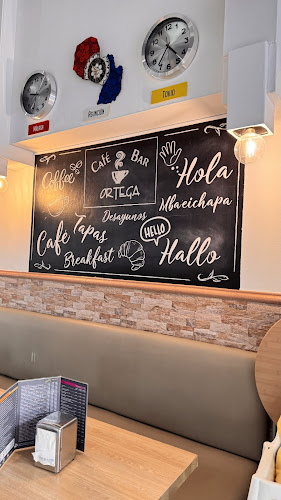 MALAGA
ASUNCIÓN
TOKIO
Coffee
CAFÉ BAR
ORTEGA
Hola
Mbaeichapa
Desayunos
Café
Tapas
Breakfast
HELLO
Hallo